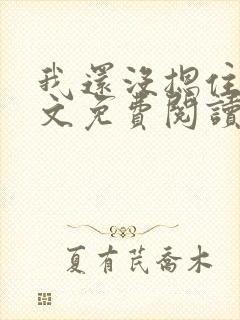 我還沒摁住
文免費閱讀
夏有芪喬木